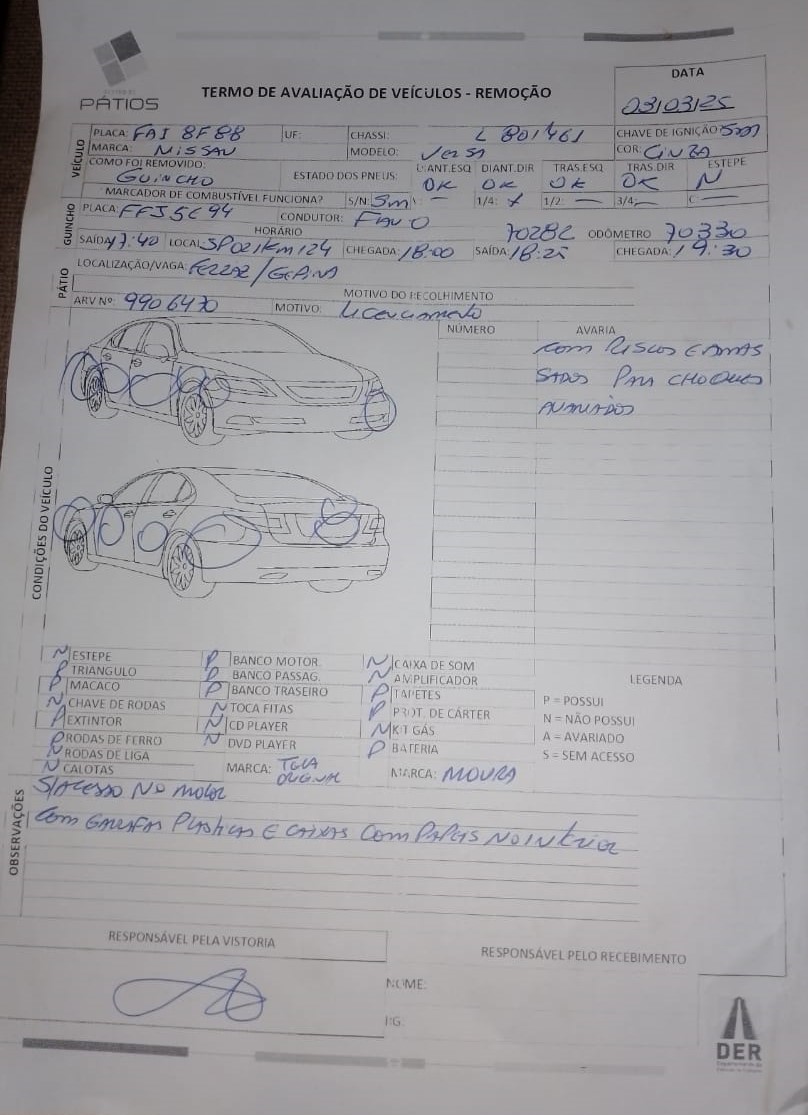 PÁTIOS
TERMO DE AVALIAÇÃO DE VEÍCULOS - REMOÇÃO
DATA
03/03/25
VEÍCULO
PLACA: FAI 8F88 UF: CHASSI: L 801461 CHAVE DE IGNIÇÃO Sim
MARCA: NISSAN MODELO: Versa COR: CINZA
COMO FOI REMOVIDO: GUINCHO ESTADO DOS PNEUS: DIANT.ESQ OK DIANT.DIR OK TRAS.ESQ OK TRAS.DIR OK ESTEPE N
MARCADOR DE COMBUSTÍVEL FUNCIONA? S/N: Sim — 1/4: 1/2: — 3/4: — C: —
GUINCHO
PLACA: FFJ5C94 CONDUTOR: 70282 ODÔMETRO 70330
HORÁRIO
SAÍDA: 17:40 LOCAL: SP021Km124 CHEGADA: 18:00 SAÍDA: 18:25 CHEGADA: 19:30
PÁTIO
LOCALIZAÇÃO/VAGA:
MOTIVO DO RECOLHIMENTO
ARV Nº: 9906470 MOTIVO: Licenciamento
CONDIÇÕES DO VEÍCULO
NÚMERO AVARIA
COM RISCOS E AMAS
SADOS PARA CHOQUES
AVARIADOS
N ESTEPE
P TRIANGULO
P MACACO
N CHAVE DE RODAS
P EXTINTOR
P RODAS DE FERRO
N RODAS DE LIGA
N CALOTAS
P BANCO MOTOR.
P BANCO PASSAG.
P BANCO TRASEIRO
N TOCA FITAS
N CD PLAYER
N DVD PLAYER
MARCA: TELA
ORIGINAL
N CAIXA DE SOM
N AMPLIFICADOR
P TAPETES
P PROT. DE CÁRTER
N KIT GÁS
P BATERIA
MARCA: MOURA
LEGENDA
P = POSSUI
N = NÃO POSSUI
A = AVARIADO
S = SEM ACESSO
OBSERVAÇÕES
S/ACESSO NO MOTOR
COM GARRAFAS PLASTICAS E CAIXAS COM PAPEIS NO INTERIOR
RESPONSÁVEL PELA VISTORIA
RESPONSÁVEL PELO RECEBIMENTO
NOME:
RG:
DER